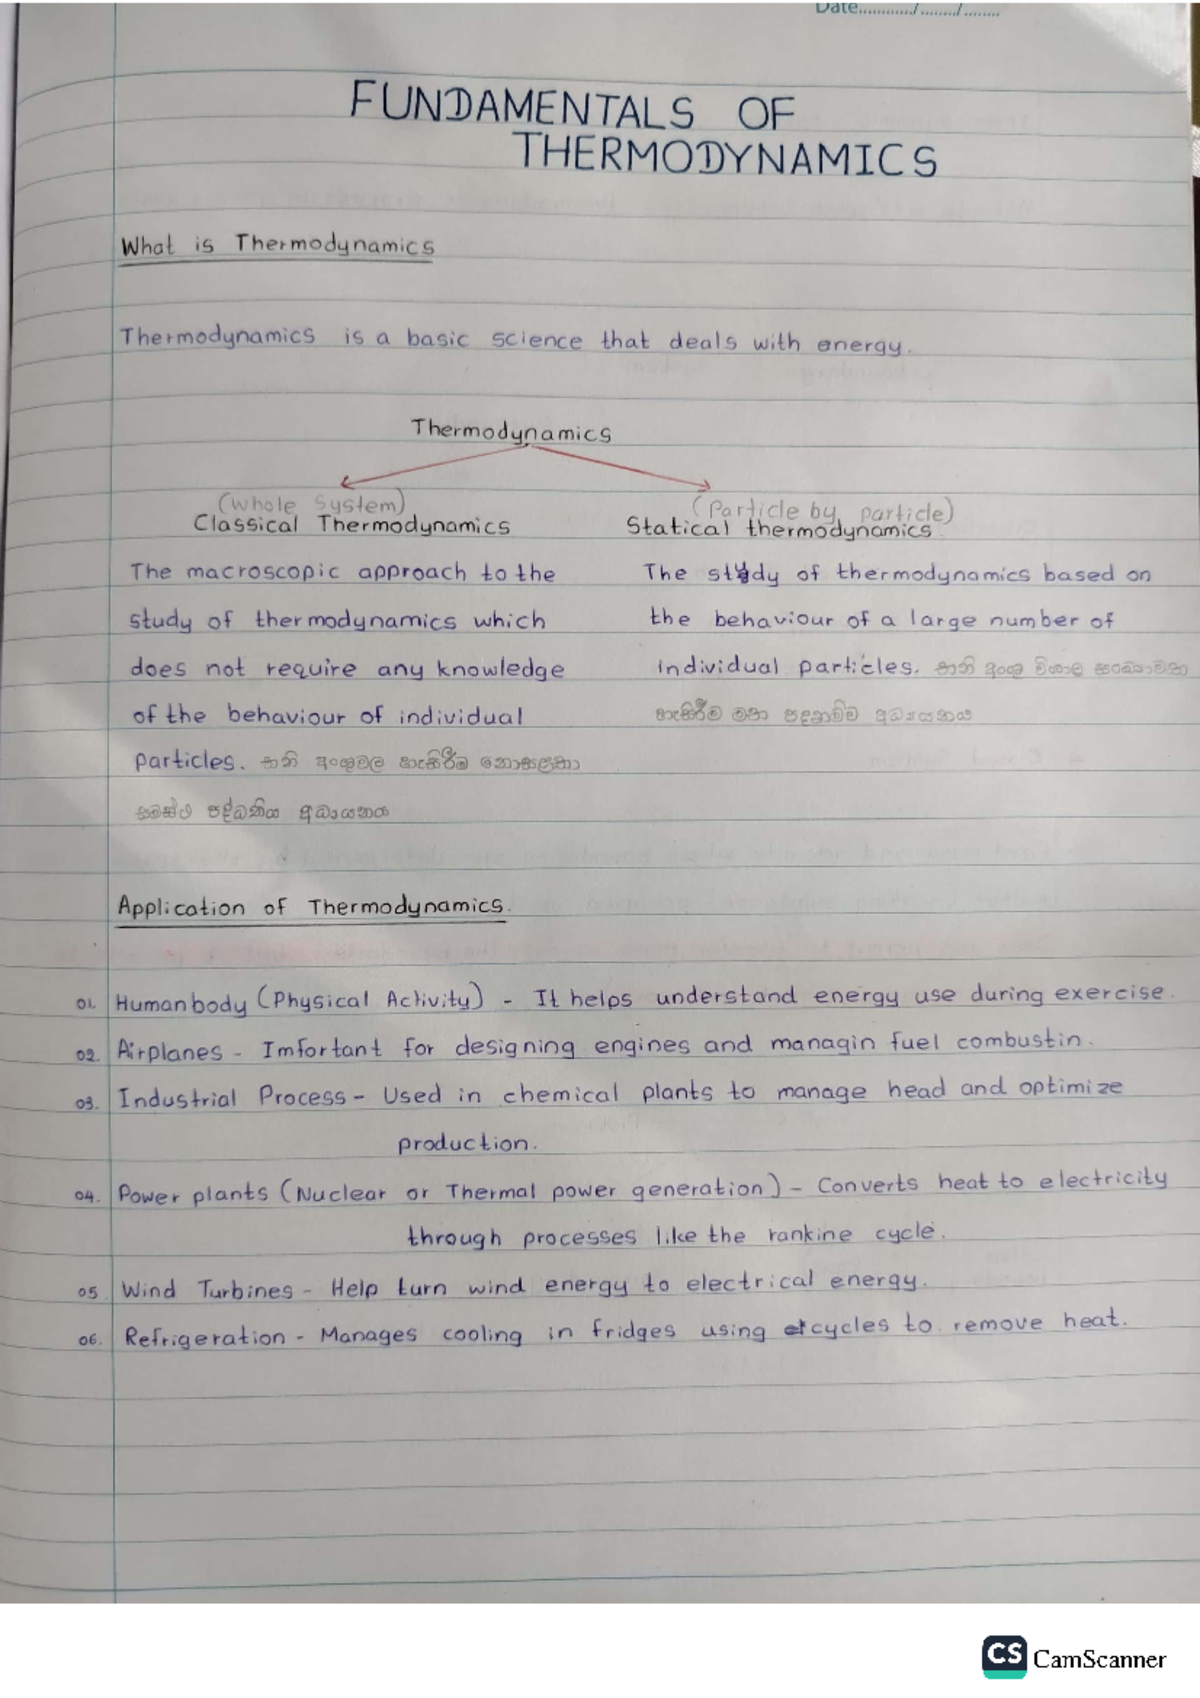 Date............/......../........
FUNDAMENTALS OF
THERMODYNAMICS
What is Thermodynamics
Thermodynamics is a basic science that deals with energy.
Thermodynamics
(Whole System)
Classical Thermodynamics
The macroscopic approach to the
study of thermodynamics which
does not require any knowledge
of the behaviour of individual
particles. තනි අංශුවල හැසිරීම නොසළකා
සමස්ථ පද්ධතිය අධ්‍යයනය
(Particle by particle)
Statical thermodynamics.
The study of thermodynamics based on
the behaviour of a large number of
individual particles. තනි අංශු විශාල සංඛ්‍යාවක
හැසිරීම මත පදනම්ව අධ්‍යයනය
Application of Thermodynamics.
01. Human body (Physical Activity) - It helps understand energy use during exercise.
02. Airplanes - Imfortant for designing engines and managin fuel combustin.
03. Industrial Process - Used in chemical plants to manage head and optimize
production.
04. Power plants (Nuclear or Thermal power generation) - Converts heat to electricity
through processes like the rankine cycle.
05 Wind Turbines - Help turn wind energy to electrical energy.
06. Refrigeration - Manages cooling in fridges using cycles to remove heat.
CS CamScanner